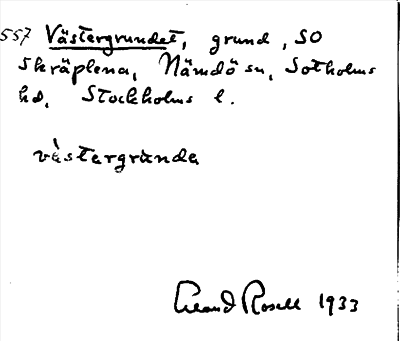 557 Västergrundet, grund, SO
Skräplena, Nämdö sn, Sotholms
hd, Stockholms l.
västergrunda
Rosell 1933